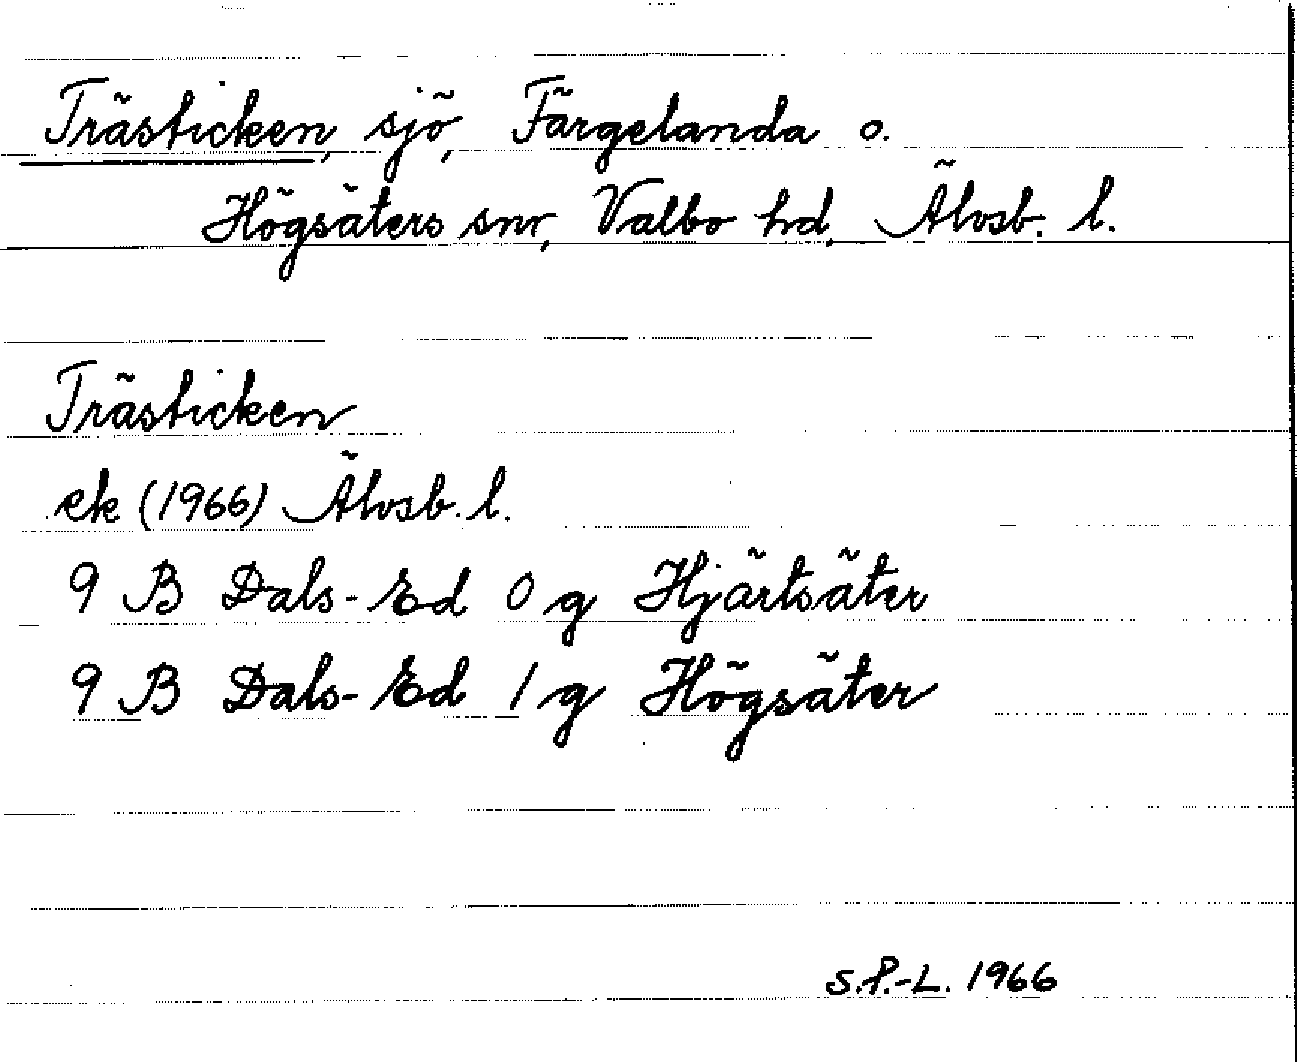 Trästicken, sjö, Färgelanda o.
Högsäters snr, Valbo hd, Älvsb. l.
Trästicken
ek (1966) Älvsb. l.
9 B Dals-Ed 0 g Hjärtsäter
9 B Dals-Ed 1 g Högsäter
S.P.-L. 1966